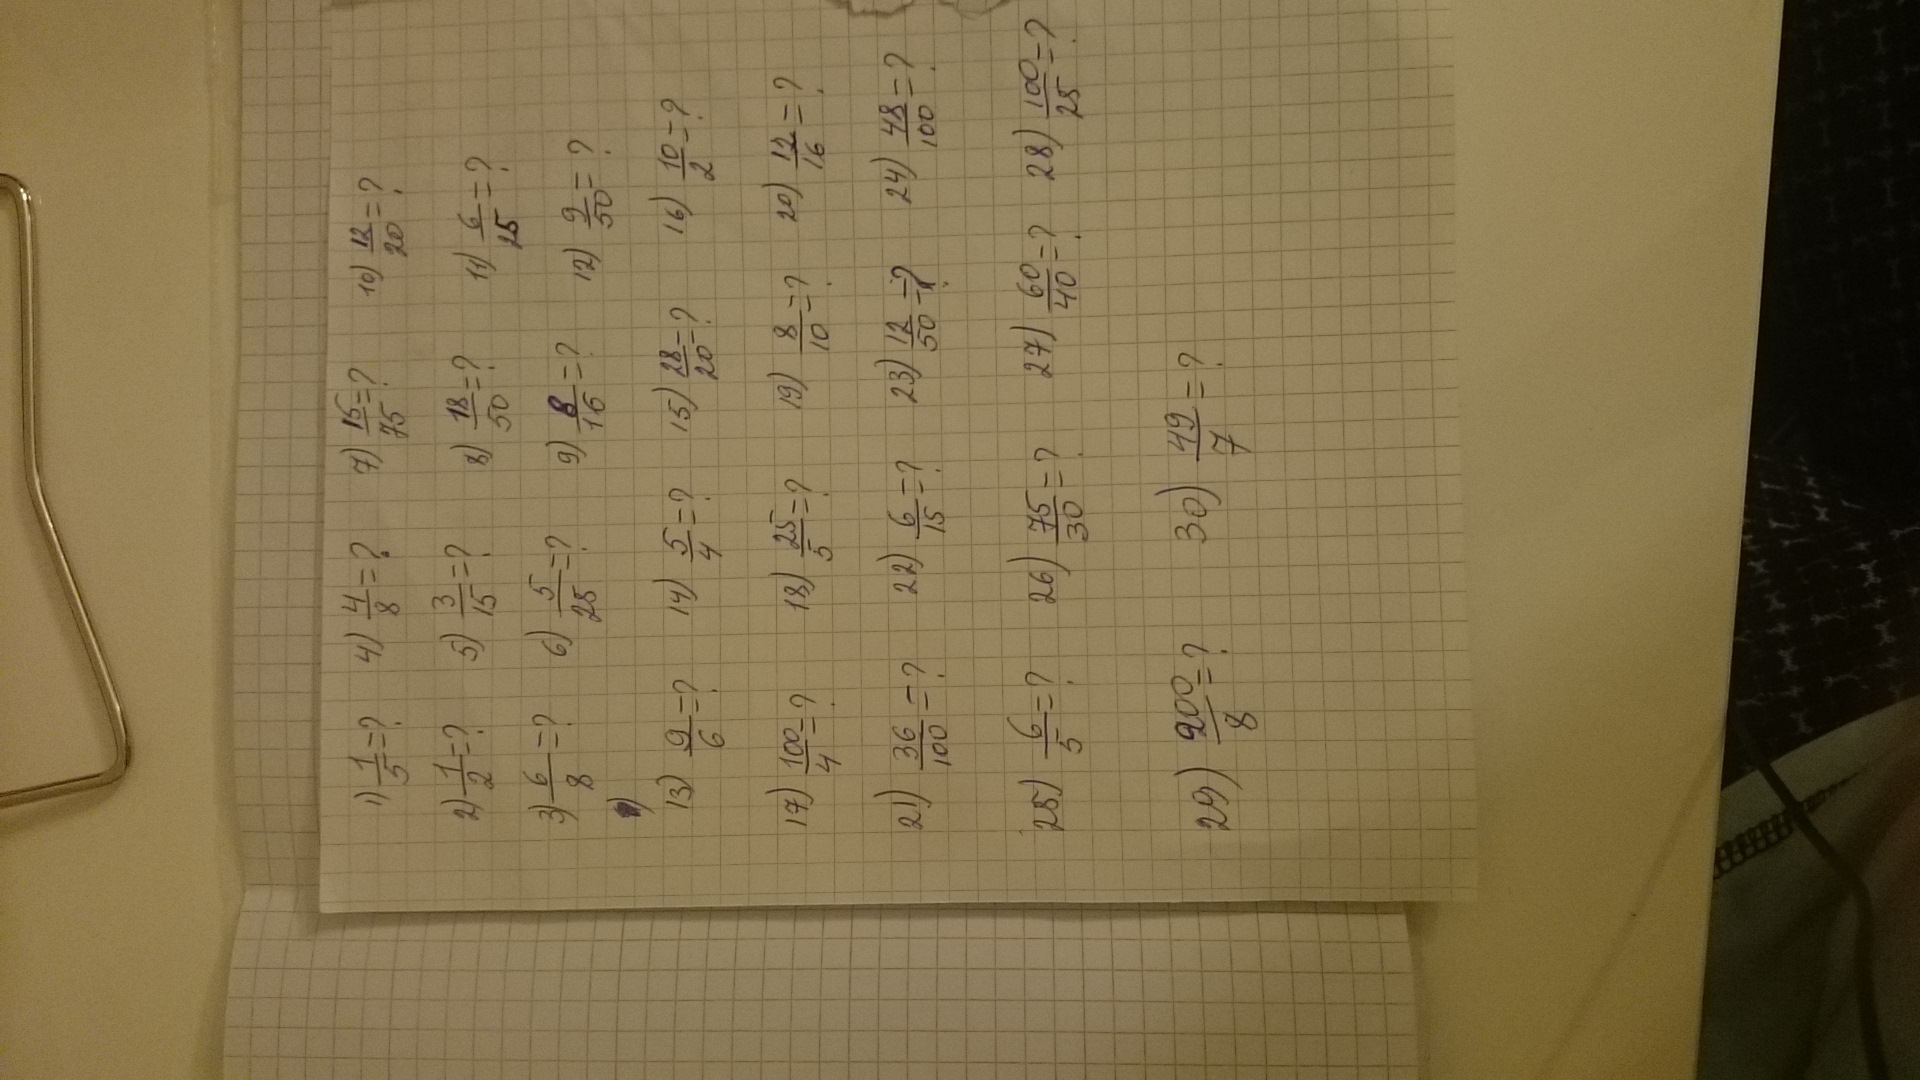 1) 1/5=? 4) 4/8=? 7) 15/75=? 10) 12/20=?
2) 1/2=? 5) 3/15=? 8) 18/50=? 11) 6/25=?
3) 6/8=? 6) 5/25=? 9) 8/16=? 12) 9/50=?
13) 9/6=? 14) 5/4=? 15) 28/20=? 16) 10/2=?
17) 100/4=? 18) 25/5=? 19) 8/10=? 20) 12/16=?
21) 36/100=? 22) 6/15=? 23) 12/50=? 24) 48/100=?
25) 6/5=? 26) 75/30=? 27) 60/40=? 28) 100/25=?
29) 200/8=? 30) 49/7=?